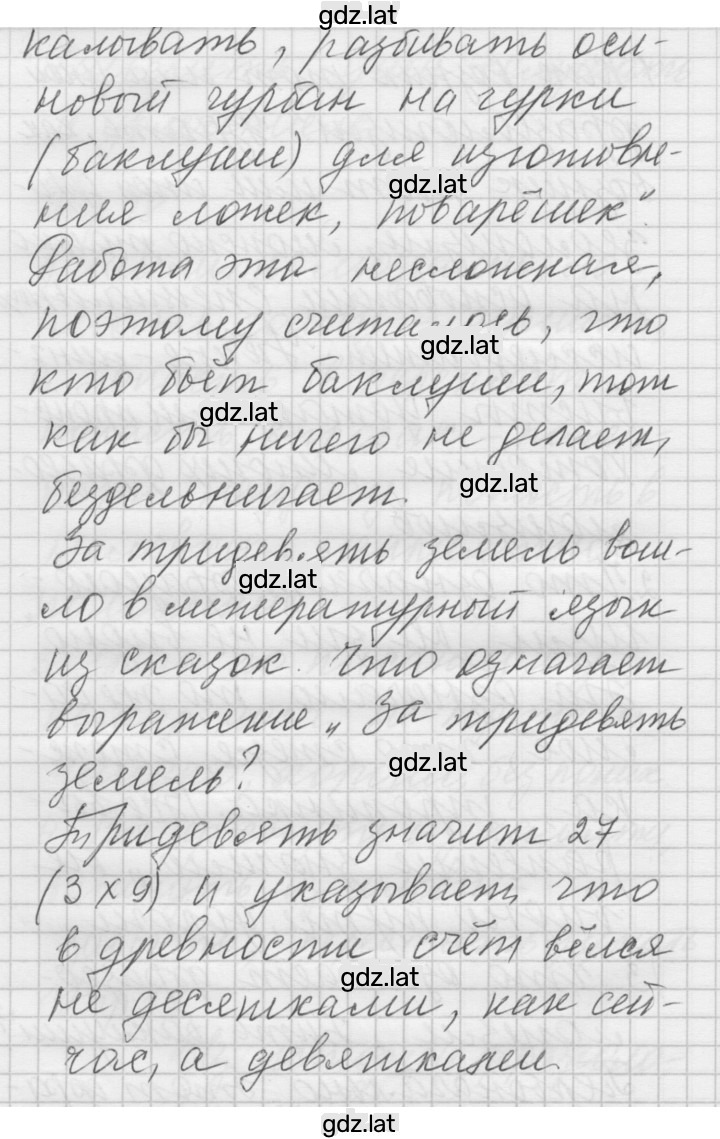 gdz.lat
калывать, разбивать оси-
новый чурбан на чурки
(баклуши) для изготовле-
gdz.lat
ния ложек, поварёшек".
Работа эта несложная,
поэтому считалось, что
gdz.lat
кто бьёт баклуши, тот
gdz.lat
как бы ничего не делает,
бездельничает.
gdz.lat
За тридевять земель вош-
gdz.lat
ло в литературный язык
из сказок. Что означает
выражение „За тридевять
земель?
gdz.lat
Тридевять значит 27
(3 x 9) и указывает, что
в древности счёт вёлся
gdz.lat
не десятками, как сей-
час, а девятками.
gdz.lat